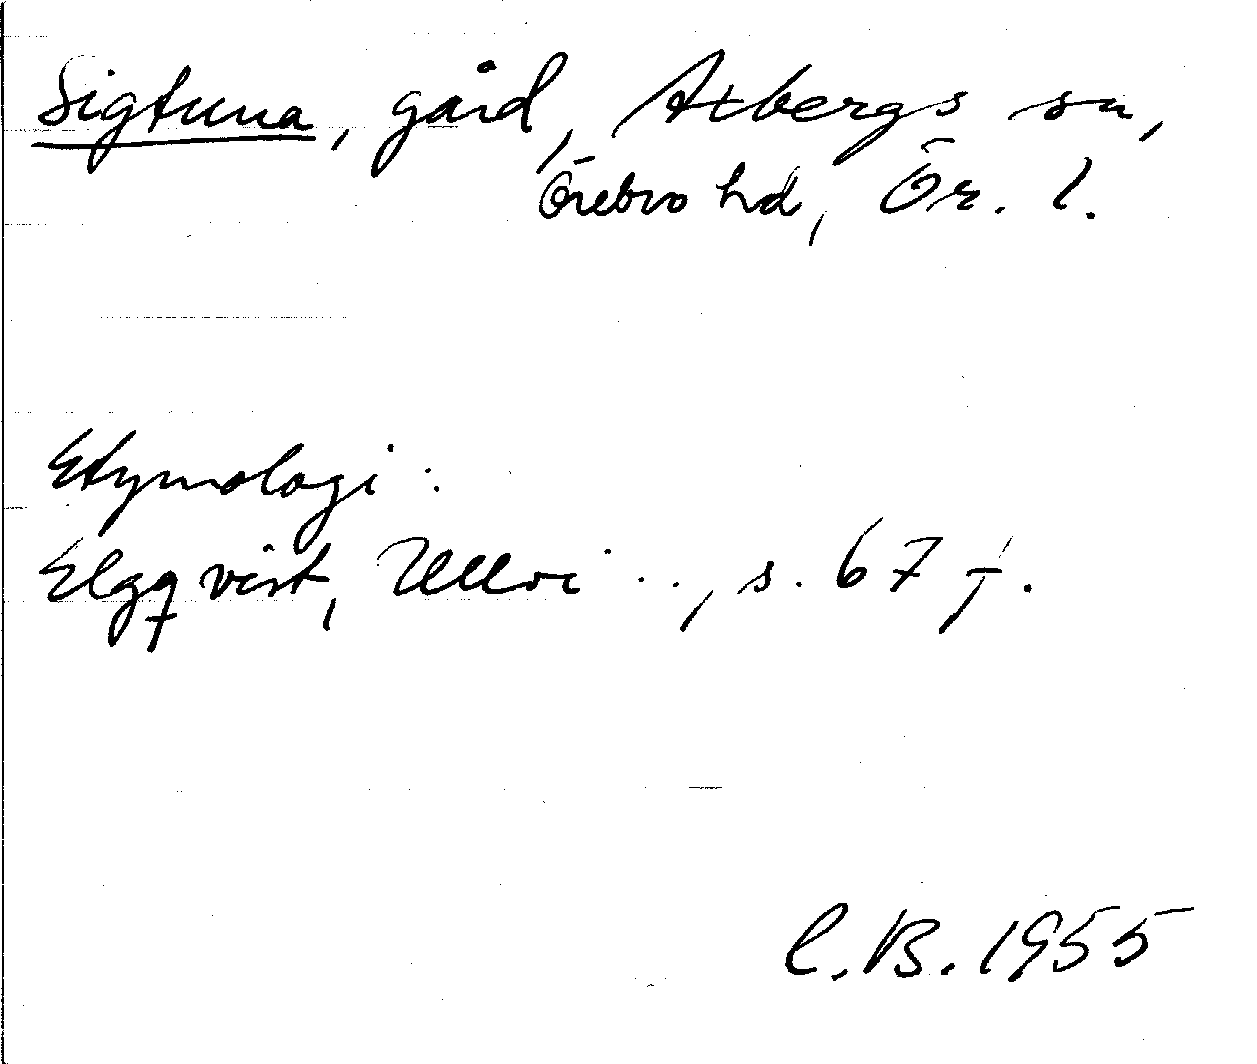 Sigtuna, gård, Axbergs sn,
Örebro hd, Ör. l.
Etymologi:
Elgqvist, Ullvi . . , s. 67 f.
C.B. 1955